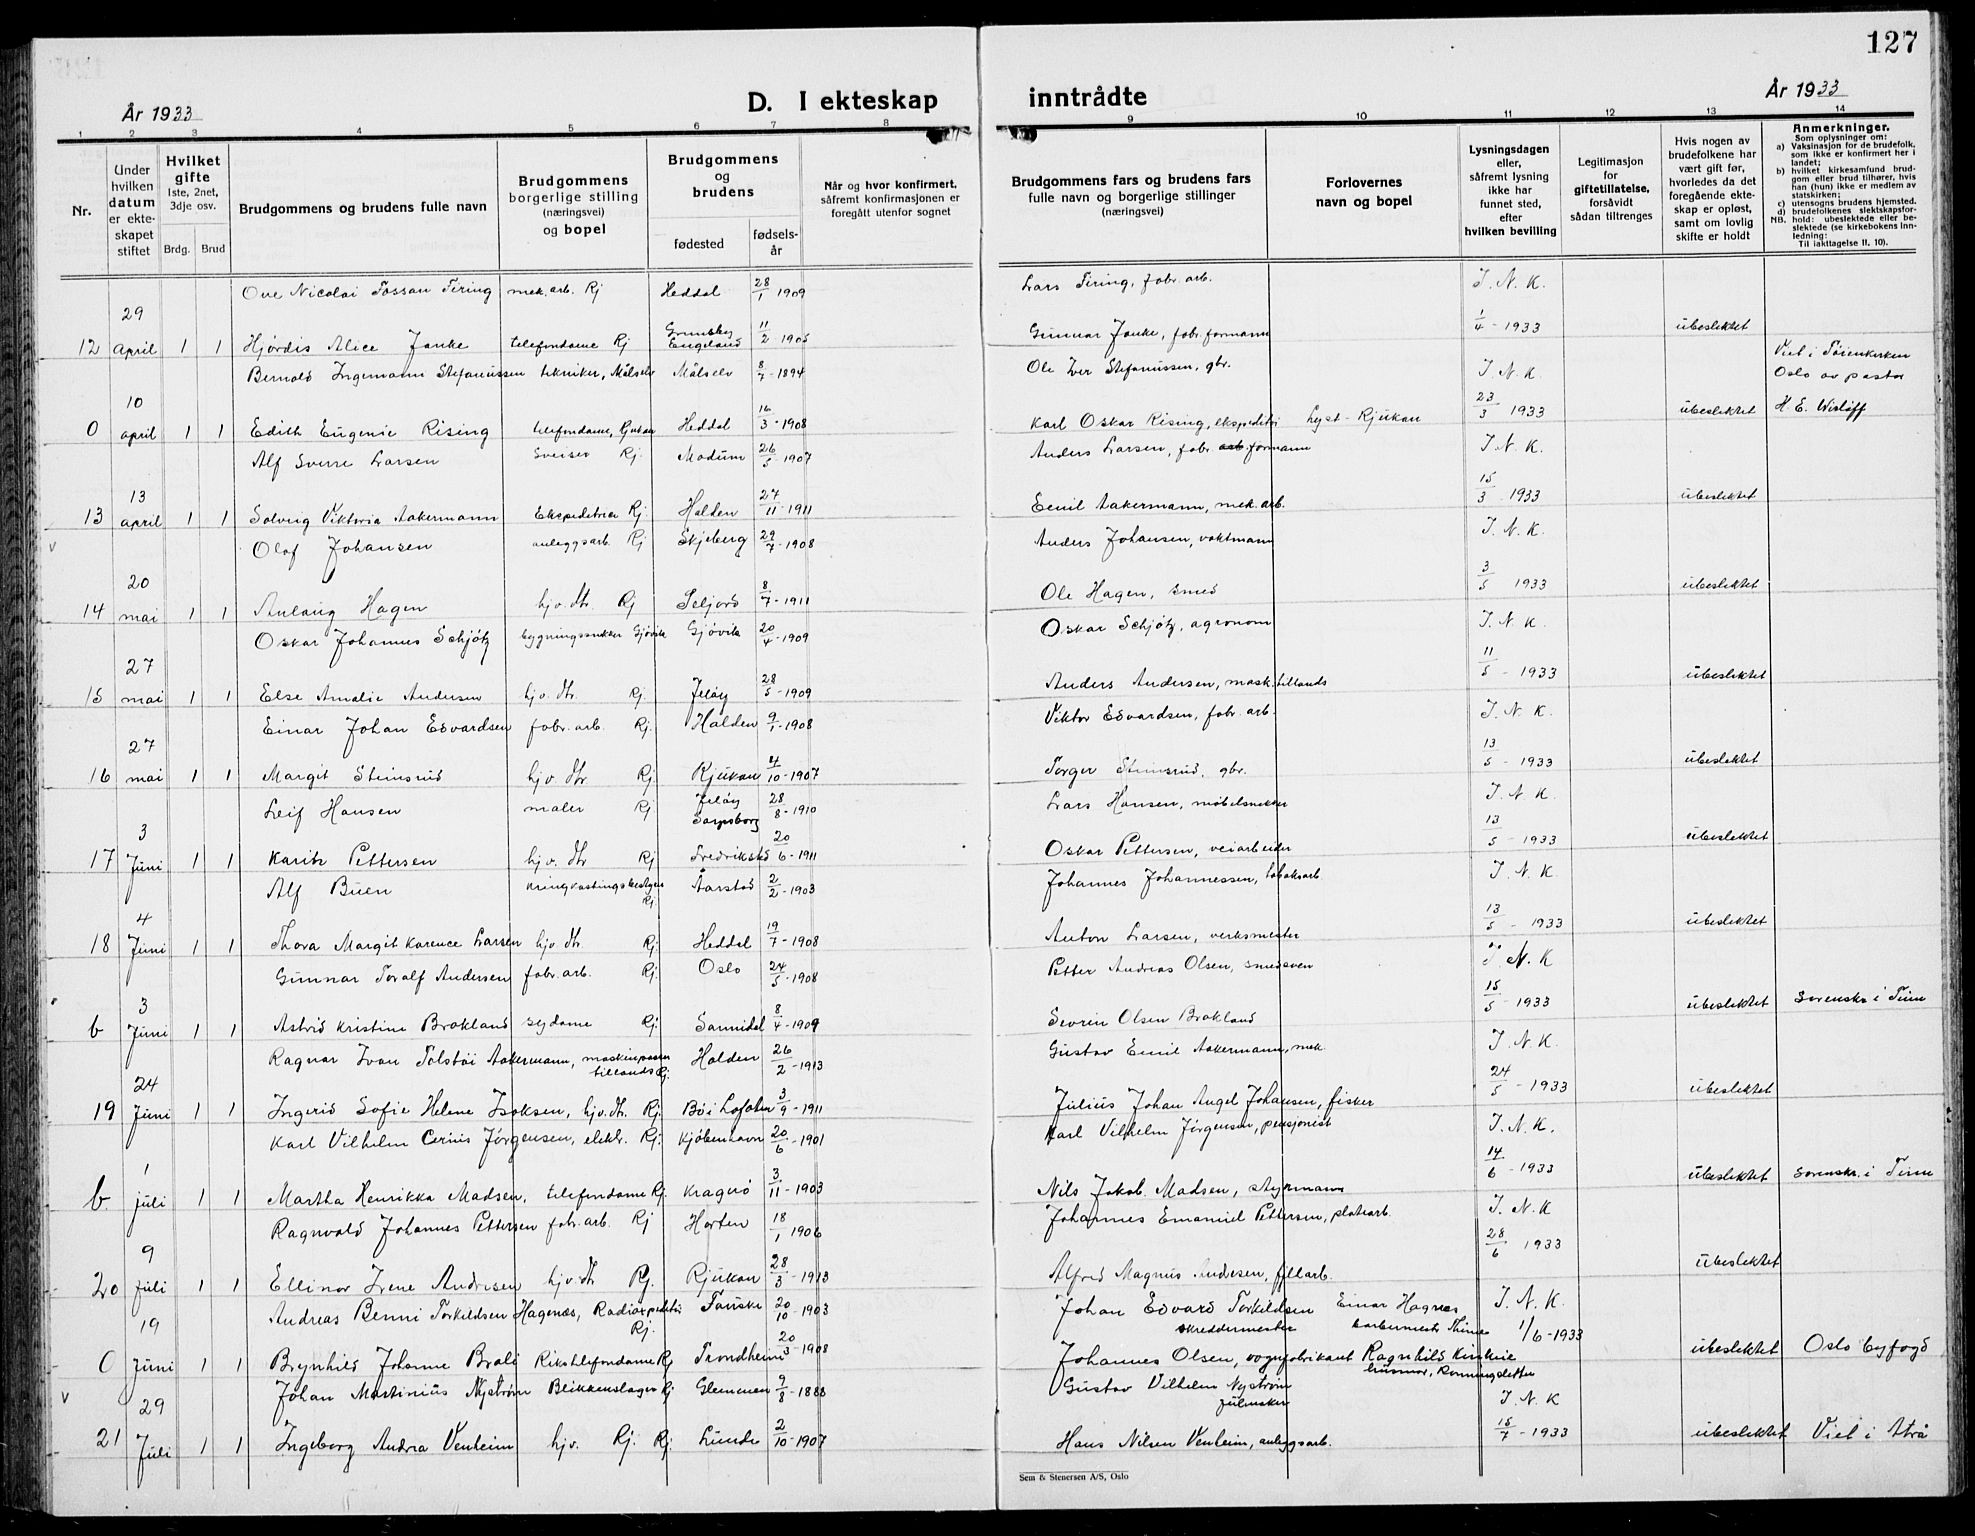 127
År 1933
D. I ekteskap
inntrådte
År 1933
1 2 3 4 5 6 7 8 9 10 11 12 13 14
Nr.
Under hvilken datum er ekteskapet stiftet
Hvilket gifte
1ste, 2net, 3dje osv.
Brdg. Brud
Brudgommens og brudens fulle navn
Brudgommens borgerlige stilling (næringsvei) og bopel
Brudgommens og brudens
fødested
fødselsår
Når og hvor konfirmert, såfremt konfirmasjonen er foregått utenfor sognet
Brudgommens fars og brudens fars fulle navn og borgerlige stillinger (næringsvei)
Forlovernes navn og bopel
Lysningsdagen eller, såfremt lysning ikke har funnet sted, efter hvilken bevilling
Legitimasjon for giftetillatelse, forsåvidt sådan tiltrenges
Hvis nogen av brudefolkene har vært gift før, hvorledes da det foregående ekteskap er opløst, samt om lovlig skifte er holdt
Anmerkninger.
Som oplysninger om:
a) Vaksinasjon for de brudefolk, som ikke er konfirmert her i landet;
b) hvilket kirkesamfund brudgom eller brud tilhører, hvis han (hun) ikke er medlem av statskirken;
c) utensogns brudens hjemsted.
d) brudefolkenes slektskapsforhold: ubeslektede eller beslektede (se kirkebokens Innledning:
NB.
Til iakttagelse II. 10).
Ove Nicolai Fossan Tiring mek. arb. Rj Heddal 28/1 1909 Lars Tiring, fabr. arb. I. N. K.
12 29 april 1 1 Hjørdis Alice Janke telefondame Rj Grimsby Engeland 11/2 1905 Gunnar Janke, fabr. formann 1/4 - 1933 ubeslektet
Bernold Ingemann Stefanussen tekniker, Målselv Målselv 8/7 - 1894 Ole Iver Stefanussen, gbr. I. N. K. Viet i Tøienkirken Oslo av pastor
0 10 april 1 1 Edith Eugenie Rising telefondame, Rjukan Heddal 16/3 - 1908 Karl Oskar Rising, ekspeditør Lyst - Rjukan 23/3 1933 ubeslektet H. E. Wisløff
Alf Sverre Larsen Sveiser Rj. Modum 26/5 - 1907 Anders Larsen, fabr. arb. formann I. N. K.
13 13 april 1 1 Solveig Viktoria Aakermann Ekspeditrice Rj. Halden 27/11 - 1911 Emil Aakermann, mek. arb. 15/3 - 1933 ubeslektet
v Olaf Johansen anleggsarb. Rj Skjeberg 29/7 - 1908 Anders Johansen, vaktmann I. N. K.
14 20 mai 1 1 Aulaug Hagen hjv. dtr. Rj Seljord 8/7 - 1911 Ole Hagen, smed 3/5 1933 ubeslektet
Oskar Johannes Schjøtz bygningssnekker Gjøvik Gjøvik 20/4 - 1909 Oskar Schjøtz, agronom I. N. K.
15 27 mai 1 1 Else Amalie Andersen hjv. dtr. Rj. Jeløy 28/5 - 1909 Anders Andersen, mask. tillands 11/5 - 1933 ubeslektet
Einar Johan Edvardsen fabr. arb. Rj. Halden 9/1 - 1908 Viktor Edvardsen, fabr. arb. I. N. K.
16 27 mai 1 1 Margit Steinsrud hjv. dtr. Rj. Rjukan 4/10 - 1907 Torger Steinsrud, gbr. 13/5 - 1933 ubeslektet
Leif Hansen maler Rj Jeløy Sarpsborg 28/8 - 1910 Lars Hansen, møbelsnekker I. N. K.
17 3 Juni 1 1 Karitz Pettersen hjv. dtr Rj Fredrikstad 20/6 - 1911 Oskar Pettersen, veiarbeider 13/5 - 1933 ubeslektet
Alf Buen kringkastingsbestyrer Rj. Aarstad 2/2 - 1903 Johannes Johannessen, tobaksarb I. N. K.
18 4 Juni 1 1 Thora Margit Karence Larsen hjv. dtr. Rj. Heddal 19/7 - 1908 Anton Larsen, verksmester 13/5 - 1933 ubeslektet
Gunnar Toralf Andersen fabr. arb. Rj. Oslo 24/5 - 1908 Petter Andreas Olsen, smedsven I. N. K
b 3 Juni 1 1 Astrid Kristine Brokland sydame Rj. Sannidal 8/4 - 1909 Sevrin Olsen Brokland 15/5 - 1933 ubeslektet sorenskr. i Tinn
Ragnar Ivan Tolstoi Aakermann, maskinpasser tillands Rj. Halden 26/2 - 1913 Gustav Emil Aakermann, mek. I. N. K.
19 24 Juni 1 1 Ingerid Sofie Helene Isaksen, hjv. dtr. Rj. Bø i Lofoten 3/9 - 1911 Julius Johan Angel Johansen, fisker 24/5 - 1933 ubeslektet
Karl Vilhelm Cerius Jørgensen, elektr. Rj. Kjøbenhavn 20/6 - 1901 Karl Vilhelm Jørgensen, pensjonist I. N. K.
b. 1 juli 1 1 Martha Henrikka Madsen, telefondame Rj. Kragerø 3/11 - 1903 Nils Jakob Madsen, styrmann 14/6 - 1933 ubeslektet sorenskr. i Tinn
Ragnvald Johannes Pettersen fabr. arb. Rj Horten 18/1 1906 Johannes Emanuel Pettersen, platearb. I. N. K
20 9 juli 1 1 Ellinor Irene Andresen hjv. dtr Rj. Rjukan 28/3 - 1913 Alfred Magnus Andresen, fjellarb. 28/6 1933 ubeslektet
Andreas Benni Torkildsen Hagenæs, Radioekspeditør Rj. Fauske 20/10 - 1903 Johan Edvard Torkildsen skreddermester Einar Hagnæs barbermestr I. N. K.
0 19 Juni 1 1 Brynhild Johanne Brali Rikstelefondame Rj Trondheim 20/3 - 1908 Johannes Olsen, vognfabrikant Ragnhild husmor, 1/6 - 1933 ubeslektet Oslo byfogd
v Johan Martinius Nystrøm Blikkenslager Rj Glemmen 9/8 - 1888 Gustav Vilhelm Nystrøm I. N. K
21 29 Juli 1 1 Ingeborg Andrea Venheim hjv. Rj. Rj. Lunde 2/10 - 1907 Hans Nilsen Venheim, anleggsarb. 15/7 - 1933 ubeslektet Viet i Atrå
Sem & Stenersen A/S, Oslo